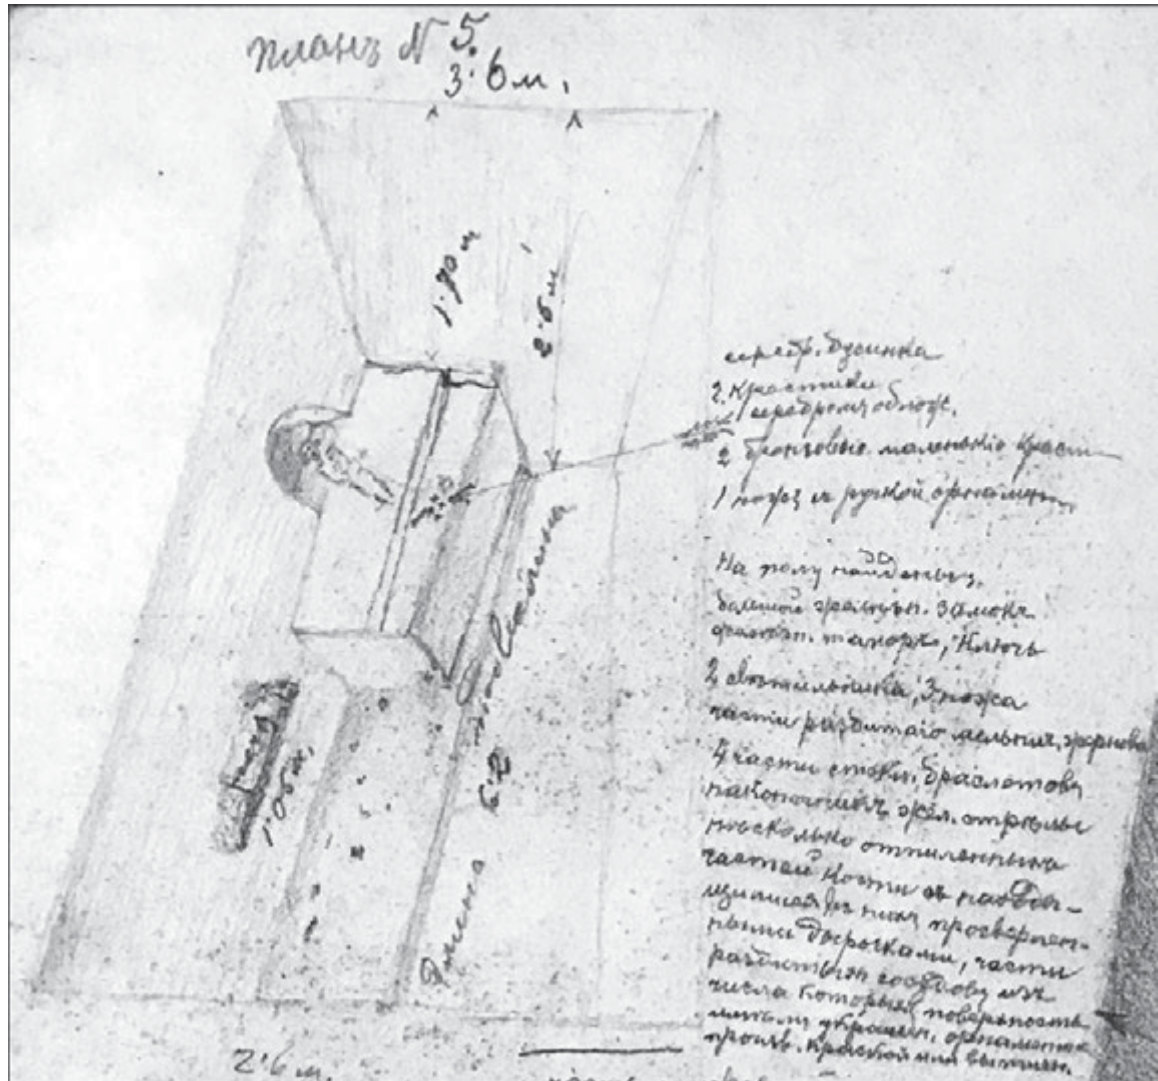 планъ N 5.
3·6 м.
1·70 м
2·6 м
серебр. бусинка
2. Крестики
серебромъ облож.
2 бронзовые маленькіе крести
1 ножъ съ ручкой орнамент
На полу найдены
большой замокъ
топоръ, Ключъ
2 свѣтильника, 3 ножа
части разбитаго мельнич. жернова
4 части стекл. браслетовъ
наконечникъ жел. стрѣлы
нѣсколько отпиленныхъ
частей кости съ находя-
щимися въ нихъ просверлен-
ными дырочками, части
разбитыхъ сосудовъ изъ
числа которыхъ поверхность
украшен. орнаментомъ
краской или
Длина 6·2
1·06 м.
2·6 м.